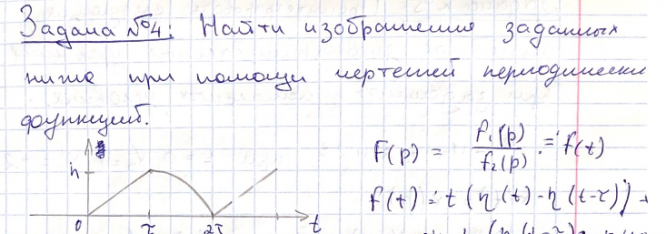 Задача №4: Найти изображения заданных
ниже при помощи чертежей периодически
функций.
F(p) = f₁(p)/f₂(p) ≓ f(t)
h
f(t) = t (η(t) - η(t-τ)) +
0 τ 2τ t